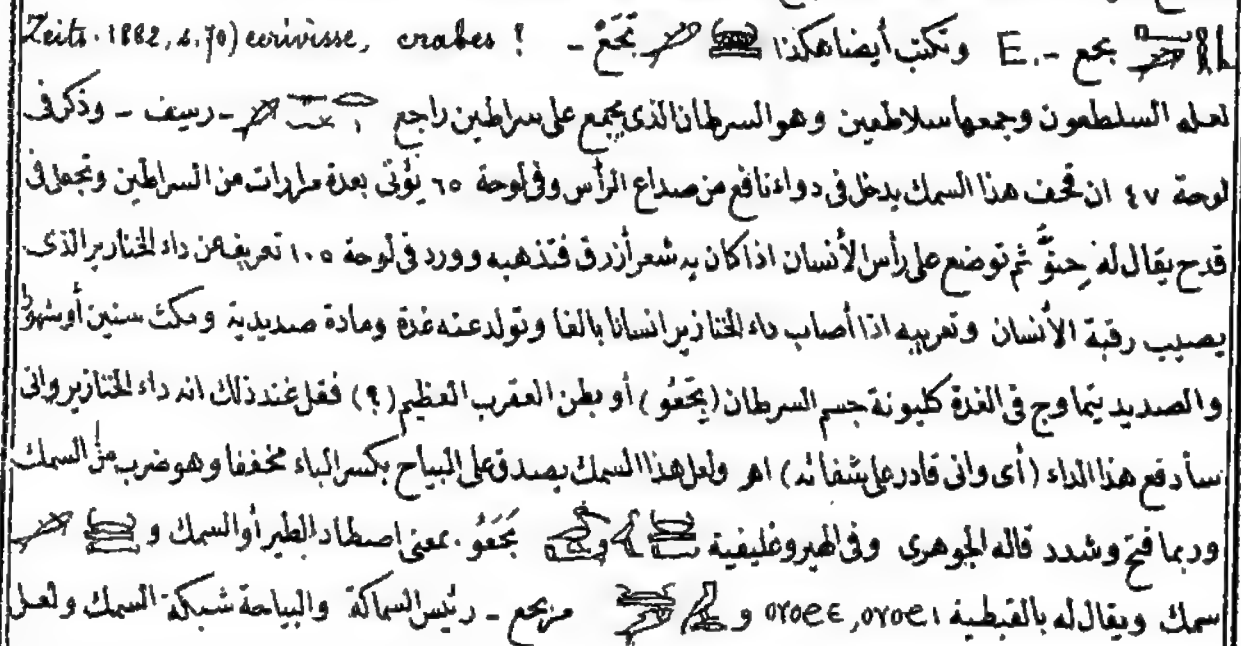 بحع -. E وتكتب أيضا هكذا بَحَعْ - Zeits. 1882, s. 70) ecrivisse, crabes !
لعله السلطعون وجمعها سلاطعين وهو السرطان الذى يجمع على سراطين راجع - رسيف - وذكر فى
لوحة ٤٧ ان قحف هذا السمك يدخل فى دواء نافع من صداع الرأس وفى لوحة ٦٥ يؤتى بعدة مرارات من السراطين وتجعل فى
قدح يقال له حِنوٌّ ثم توضع على رأس الأنسان اذا كان به شعر أزرق فتذهبه وورد فى لوحة ١٠٥ تعريف عن داء الخنازير الذى
يصيب رقبة الأنسان وتعريبه اذا أصاب داء الخنازير انسانا بالغا وتولد عنه غدة ومادة صديدية ومكث سنين أو شهورا
والصديد يتماوج فى الغدة كليونة جسم السرطان (بِحَعُو) أو بطن العقرب العظيم (؟) فقل عند ذلك انه داء الخنازير وانى
سأدفع هذا الداء (أى وانى قادر على شفائه) اهر ولعل هذا السمك يصدق على البياح بكسر الباء مخففا وهو ضرب من السمك
وربما فتح وشدد قاله الجوهرى وفى الهيروغليفية و بَحَعُو . بمعنى اصطاد الطير أو السمك و
سمك ويقال له بالقبطية ⲟⲩⲟϩⲉ, ⲟⲩⲟϩⲓ و مزبحع - رئيس السماكة والبياحة شبكة السمك ولعل